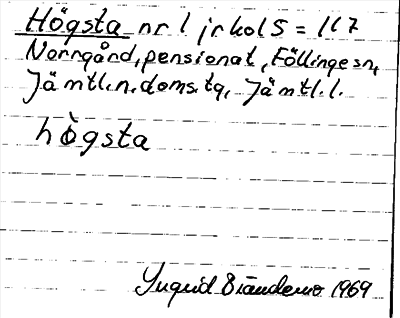 Högsta nr 1 jrkol 5 = 167
Norrgård, pensionat, Föllinge sn,
Jämtl. n. doms. tg, Jämtl. l.
hògsta
Ingrid 1969